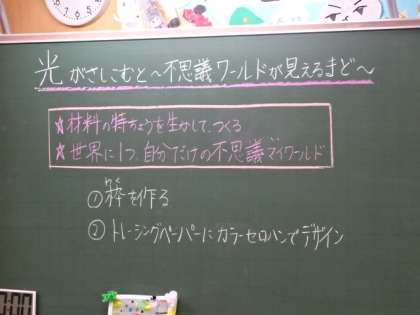 光がさしこむと～不思議ワールドが見えるまど～
☆材料の特ちょうを生かして、つくる
☆世界に1つ、自分だけの不思議マイワールド
①枠を作る
わく
②トレーシングペーパーにカラーセロハンでデザイン